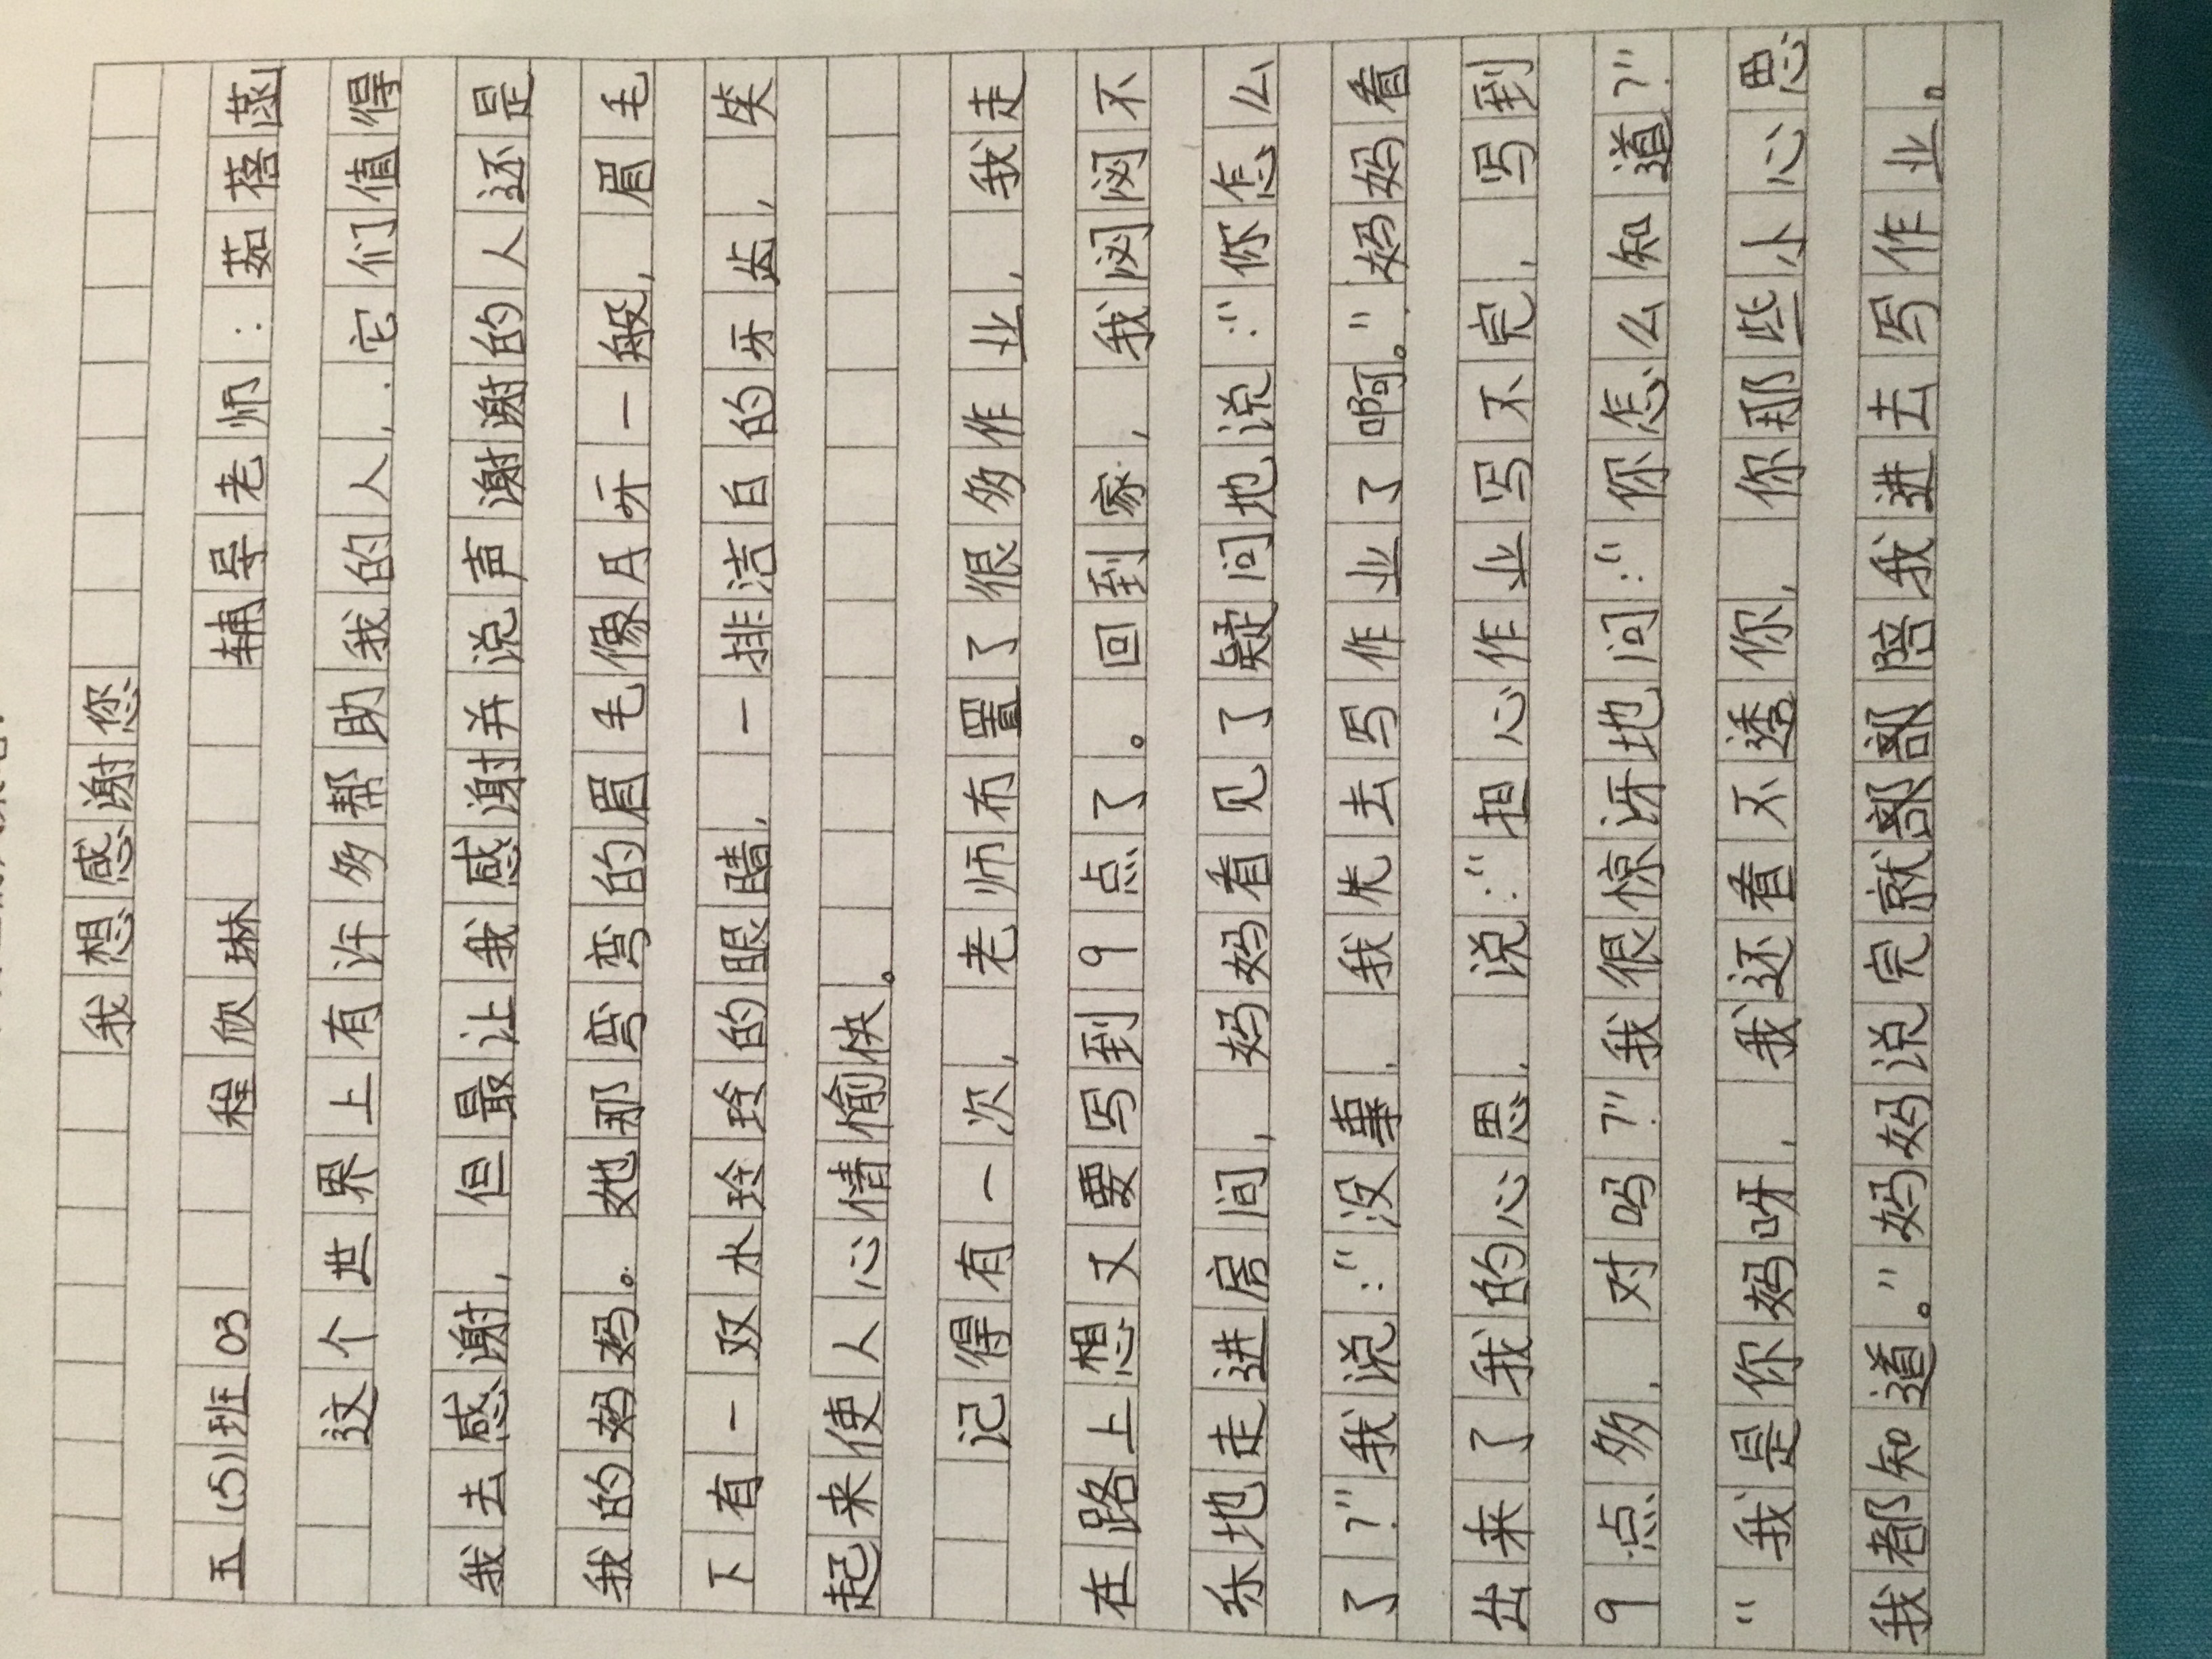 我想感谢您
五(5)班03 程欣琳 辅导老师:茹蓓蓓
这个世界上有许多帮助我的人,它们值得
我去感谢,但最让我感谢并说声谢谢的人还是
我的妈妈。她那弯弯的眉毛像月牙一般,眉毛
下有一双水玲玲的眼睛,一排洁白的牙齿,笑
起来使人心情愉快。
记得有一次,老师布置了很多作业,我走
在路上想又要写到9点了。回到家,我闷闷不
乐地走进房间,妈妈看见了疑问地说:“你怎么
了?”我说:“没事,我先去写作业了啊。”妈妈看
出来了我的心思,说:“担心作业写不完,写到
9点多,对吗?”我很惊讶地问:“你怎么知道?”
“我是你妈呀,我还看不透你,你那些小心思
我都知道。”妈妈说完就陪我进去写作业。